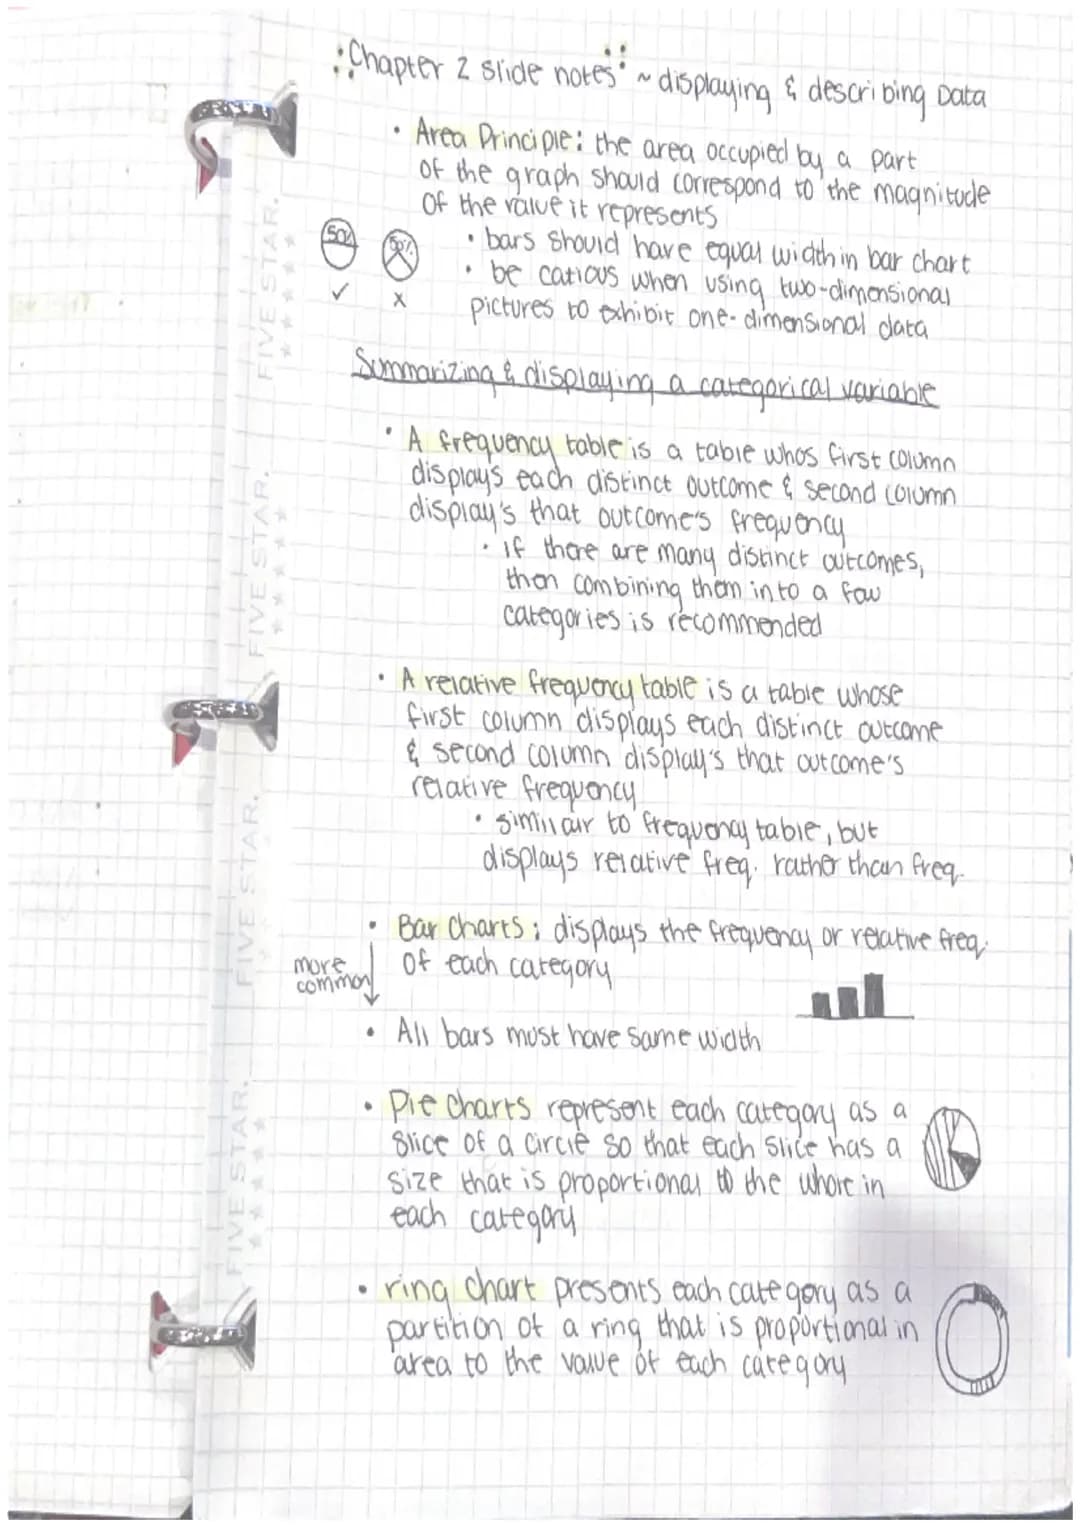 Chapter 2 slide notes ~ displaying & describing Data
• Area Principle: the area occupied by a part
of the graph should correspond to the magnitude
of the value it represents
50%
50%
✓
x
• bars should have equal width in bar chart
• be catious when using two-dimensional
pictures to exhibit one-dimensional data
Summarizing & displaying a categorical variable
• A frequency table is a table whos first column
displays each distinct outcome & second column
display's that outcome's frequency
• if there are many distinct outcomes,
then combining them into a few
categories is recommended
• A relative frequency table is a table whose
first column displays each distinct outcome
& second column display's that outcome's
relative frequency
• similar to frequency table, but
displays relative freq. rather than freq.
• Bar Charts: displays the frequency or relative freq.
of each category
more
common
• All bars must have same width
• Pie charts represent each category as a
slice of a circle so that each slice has a
size that is proportional to the whole in
each category
• ring chart presents each category as a
partition of a ring that is proportional in
area to the value of each category
FIVE STAR.
FIVE STAR.
FIVE STAR.
FIVE STAR.